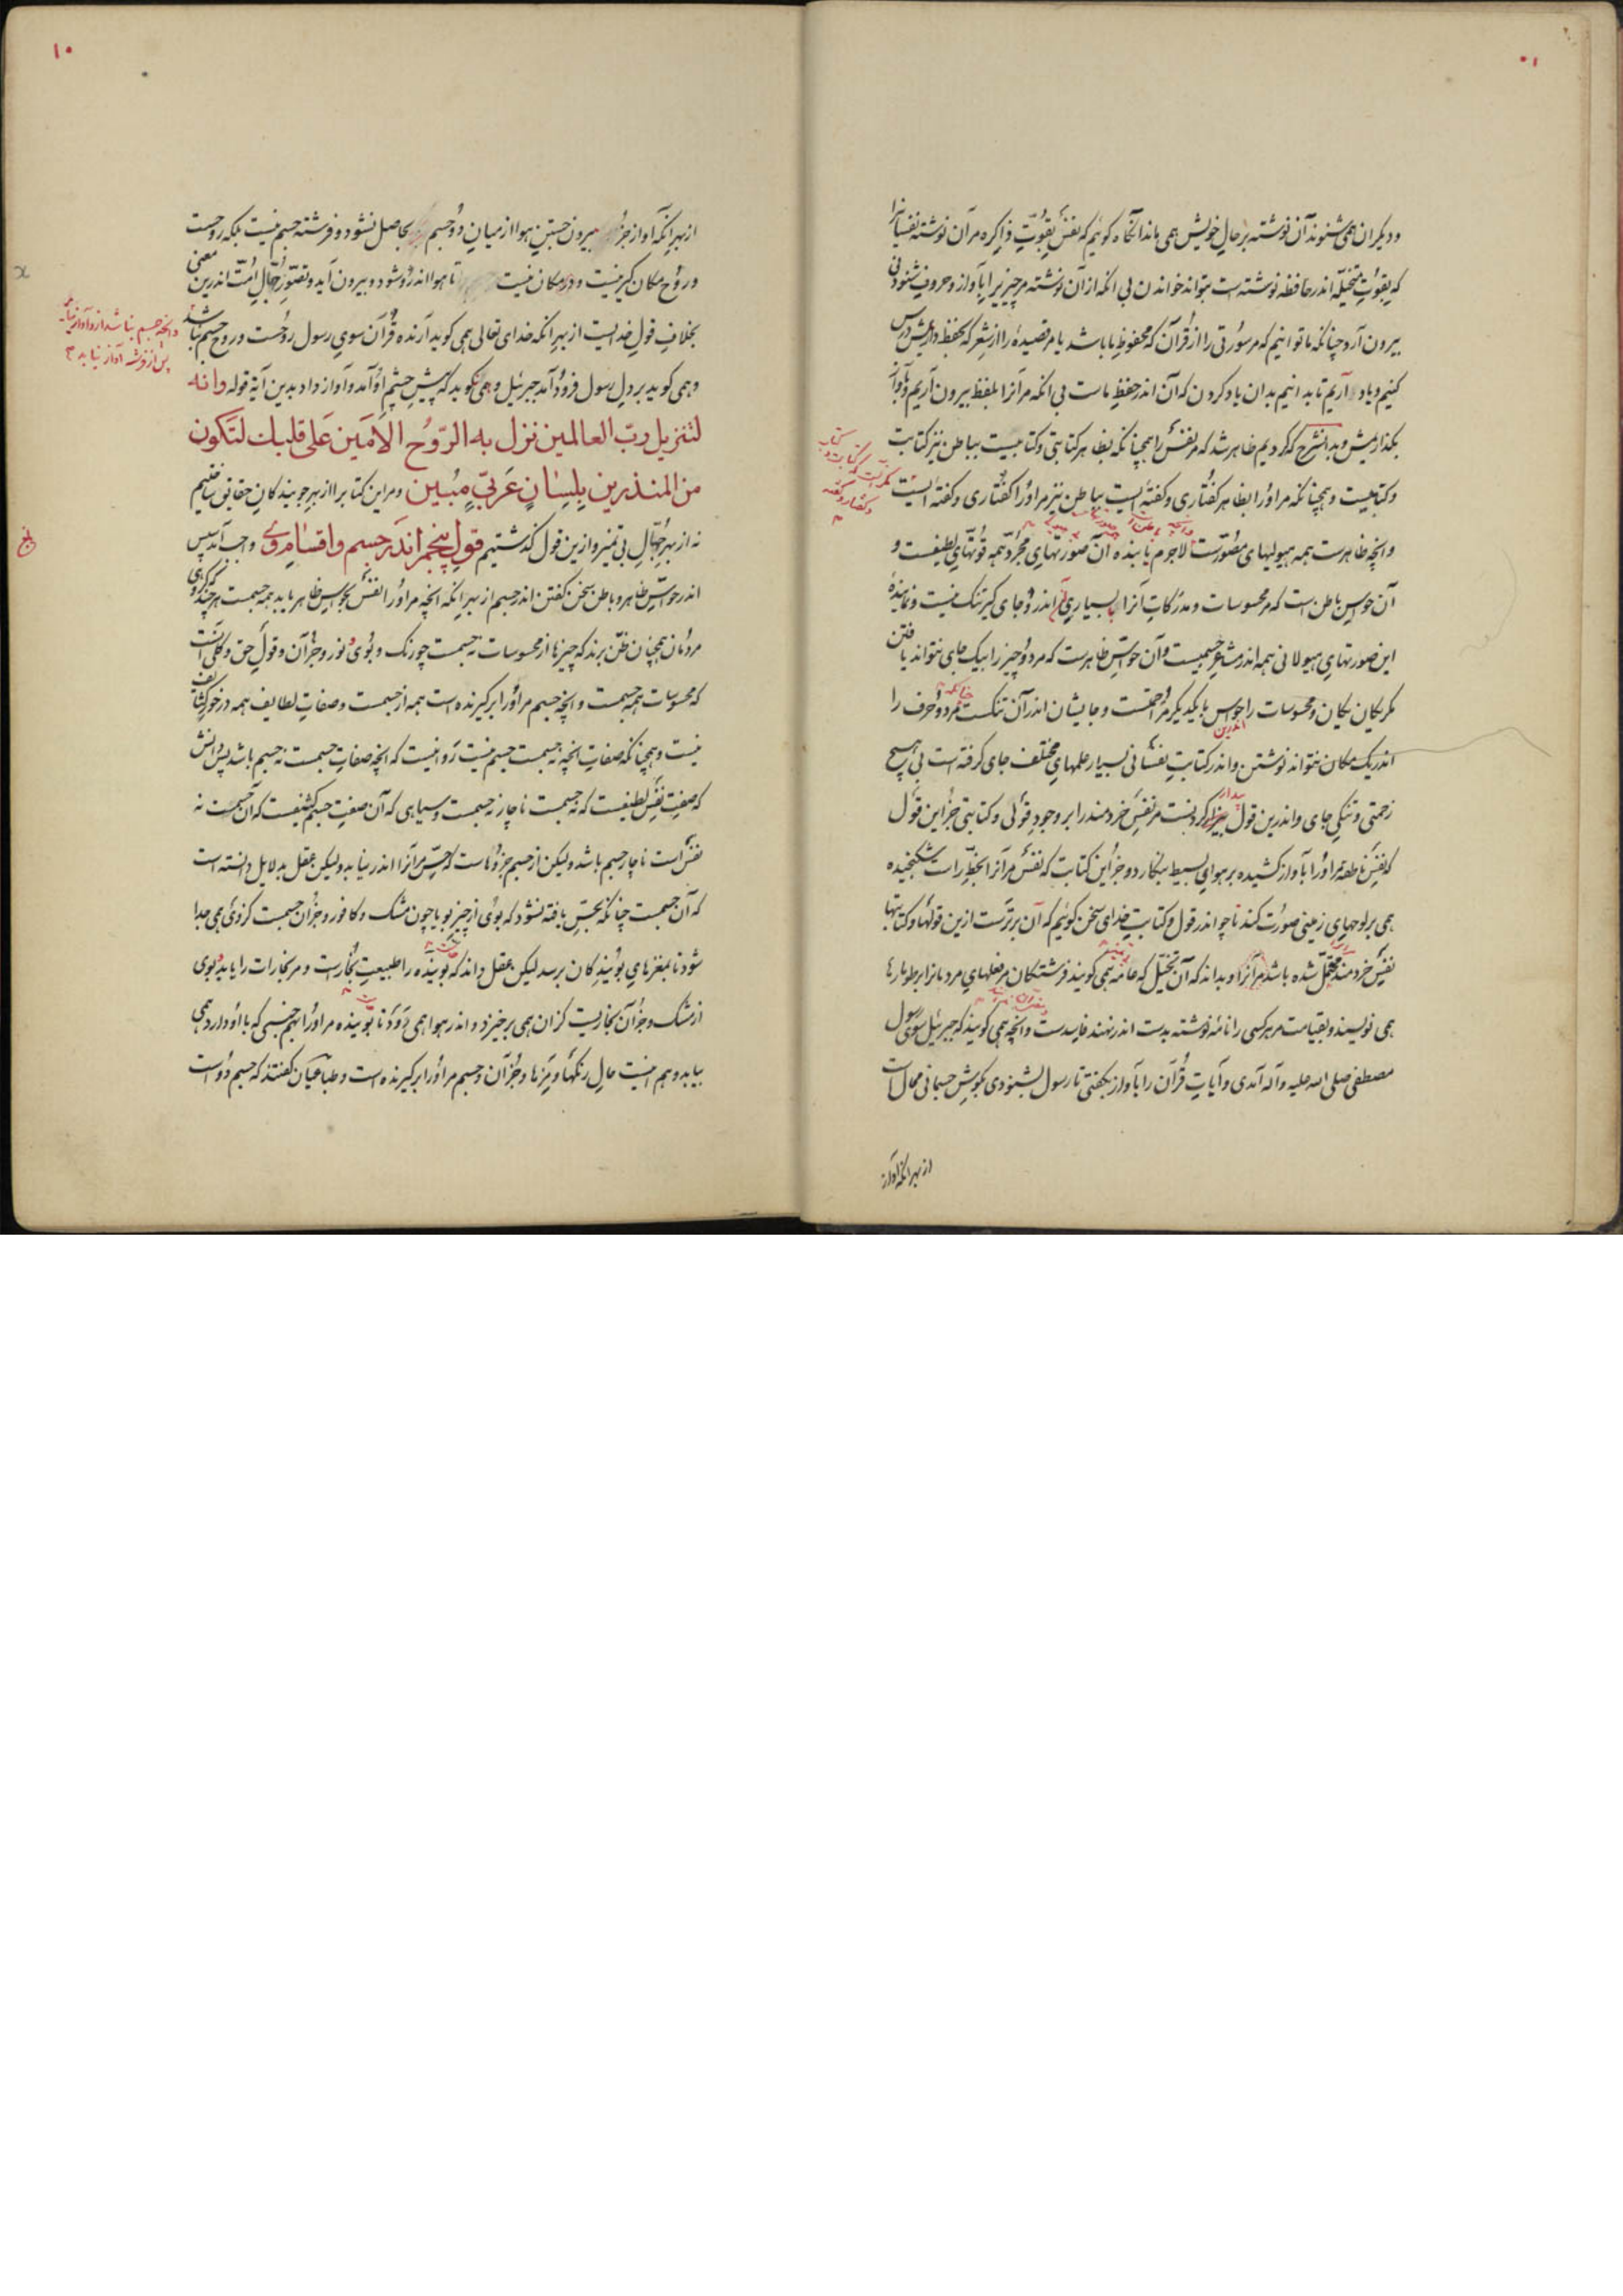 ودیکران همی شنوند آن نوشته بر حال خویش همی ماند آنکاه کوئیم که نفس بقوت ذاکره مر آن نوشته نفسانی را
که بقوت متخیله اندر حافظه نوشته است بتواند خواندن بی انکه از آن نوشته مر چیزیرا بآواز و حروف شنودنی
بیرون آرد چنانکه ما توانیم که مر سورتی را از قرآن که محفوظ ما باشد یا مر قصیدهٔ را از شعر که بحفظ داریمش درس
کنیم و یاد آریم تا بدانیم بدان یاد کردن که آن اندر حفظ ماست بی انکه مر آنرا بلفظ بیرون آریم و بآواز
بکذاریمش و بدانشرح که کردیم ظاهر شد که مر نفس را همچنانکه بظاهر کتابتی و کتابیست بباطن نیز کتابت
و کتابیست و همچنانکه مر اورا بظاهر کفتاری و کفته ایست بباطن نیز مر اورا کفتاری و کفته ایست
وانچه ظاهرست همه هیولیهای مصورست لاجرم یابنده آن صورتهای مجرد همه قوتهای لطیفست و
آن حواس باطن است که مر محسوسات و مدرکات آنرا بسیاری اندرو جای کیر تنک نیست و نمایندهٔ
این صورتهای هیولانی همه اندر مشاعر جسمیست و آن حواس ظاهرست که مر دو چیز را بیک جای نتواند یافتن
مکر یکان یکان و محسوسات را حواس با یکدیکر مزاحمتست و جایشان اندر آن تنکست مر دو حرف را
اندر یک مکان نتواند نوشتن و اندر کتابت نفسانی بسیار علمهای مختلف جای کرفته است بی هیچ
زحمتی و تنکی جای و اندرین قول بیدار کردنست مر نفس خردمند را بر وجود قولی و کتابتی جز این قول
که نفس ناطقه مر اورا بآواز کشیده بر هوای بسیط بنکارد و جز این کتابت که نفس مر آنرا بخط راست شکنجیده
همی بر لوحهای زمینی صورت کند تا چو اندر قول و کتابت خدای سخن کوئیم که آن برترست ازین قولها و کتابتها
نفس خردمند محتمل شده باشد مر آنرا و بداند که آن تخیل که عامه همی کویند فرشتکان مر فعلهای مردمانرا بر طومارها
همی نویسند و بقیامت مر هر کسی را نامهٔ نوشته بدست اندر نهند فاسدست وانچه همی کویند که جبرئیل سوی رسول
مصطفی صلی الله علیه و آله آمدی و آیات قرآن را بآواز بکفتی تا رسول بشنودی بکوش جسمانی محالست
از بهر انکه آواز
۱۰
از بهر انکه آواز جز بیرون جستن هوا از میان دو جسم حاصل نشود و فرشته جسم نیست بلکه روحست
و روح مکان کیر نیست و در مکان نیست تا هوا اندرو شود و بیرون آید و تصور جهال امت اندرین معنی
بخلاف قول خدایست از بهر انکه خدای تعالی همی کوید آرنده قرآن سوی رسول روحست و روح جسم نباشد
وانچه جسم نباشد ازو آواز نیاید پس از فرشته آواز نیاید
و همی کوید بر دل رسول فرود آمد جبرئیل و همی نکوید که پیش چشم او آمد و آواز داد بدین آیة قوله وانه
لتنزیل رب العالمین نزل به الروح الامین علی قلبک لتکون
من المنذرین بلسان عربی مبین و مر این کتابرا از بهر جویندکان حقایق ساختیم
نه از بهر جهال بی تمیز و ازین قول کذشتیم قول پنجم اندر جسم و اقسام وی واجب آمد سپس
اندر حواس ظاهر و باطن سخن کفتن اندر جسم از بهر انکه انچه مر اورا نفس بحواس ظاهر یابد همه جسمست هر چند که کروهی
مردمان همچنان ظن برند که چیزها از محسوسات نه جسمست چو رنک و بوی و نور و جز آن و قول حق و کلی آنست
که محسوسات همه جسمست وانچه جسم مر اورا بر کیرنده است همه از جسمست و صفات لطایف همه در خور کثایف
نیست و همچنانکه صفات انچه نه جسمست جسم نیست روا نیست که انچه صفات جسمست نه جسم باشد پس دانش
که صفت نفس لطیفست که نه جسمست ناچار نه جسمست و سیاهی که آن صفت جسم کثیفست که آن جسمست نه
نفس است ناچار جسم باشد ولیکن از جسم جزوهاست که حس مر آنرا اندر نیابد ولیکن عقل بدلایل دانسته است
که آن جسمست چنانکه بحس یافته نشود که بوی از چیز بویا چون مشک و کافور و جز آن جسمست کزوی همی جدا
شود تا بمغزهای بویندکان برسد لیکن عقل داند که بوینده را طبیعت بخارست و مر بخارات را یابد و بوی
از مشک و جز آن بخاریست کزان همی برخیزد و اندر هوا همی رود تا بوینده مر اورا بهم جنسی که با او دارد همی
بیابد و هم اینست حال رنکها و مزه ها و جز آن و جسم مر اورا بر کیرنده است و طباعیان کفتند که جسم دو است